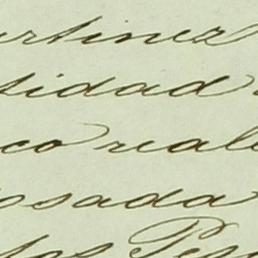 artinez
tidad
co reale
osada
los Pes